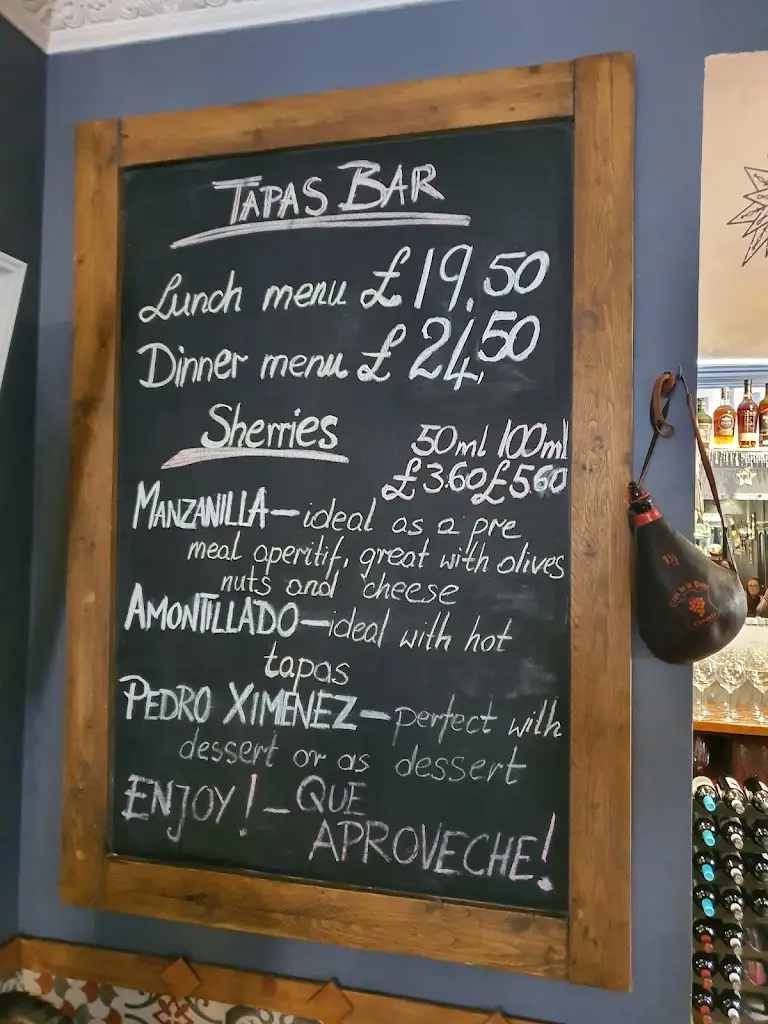 TAPAS BAR
Lunch menu £19.50
Dinner menu £24,50
Sherries
50ml 100ml
£3.60 £5.60
MANZANILLA—ideal as a pre
meal aperitif, great with olives
nuts and cheese
AMONTILLADO—ideal with hot
tapas
PEDRO XIMENEZ—perfect with
dessert or as dessert
ENJOY! – QUE
APROVECHE!